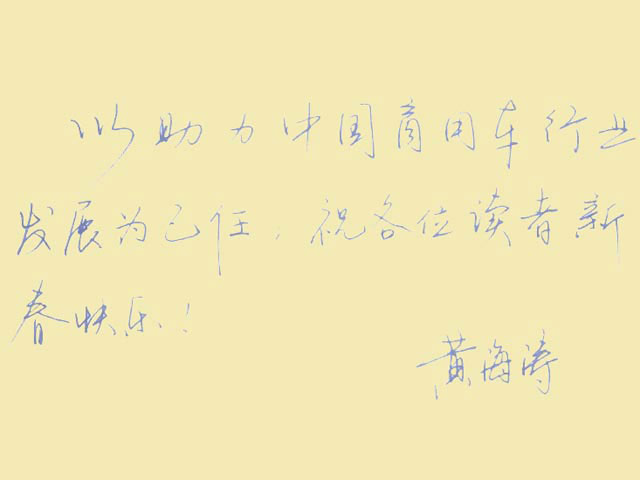 以助力中国商用车行业
发展为己任，祝各位读者新
春快乐！
黄海涛